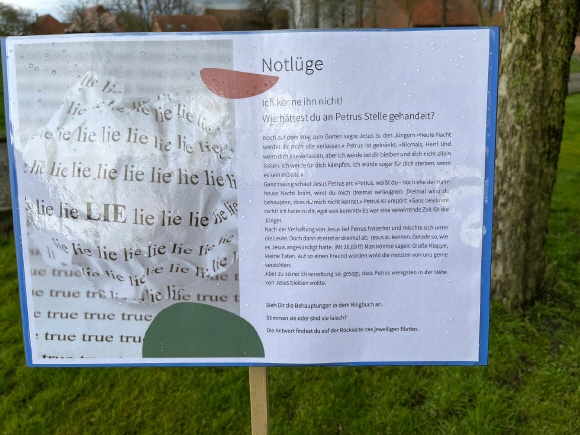 lie lie
lie lie lie lie lie
lie lie lie lie lie lie
lie lie lie lie lie lie
lie lie LIE lie lie lie lie
lie lie lie
true true lie lie lie true t
true true true true
true true true true
true true true
Notlüge
Ich kenne ihn nicht!
Wie hättest du an Petrus Stelle gehandelt?
Noch auf dem Weg zum Garten sagte Jesus zu den Jüngern »Heute Nacht
werdet ihr mich alle verlassen.« Petrus ist gekränkt: »Niemals, Herr! Und
wenn dich alle verlassen, aber ich werde bei dir bleiben und dich nicht allein
lassen. Ich werde für dich kämpfen. Ich würde sogar für dich sterben, wenn
es sein müsste.«
Ganz traurig schaut Jesus Petrus an: »Petrus, weißt du - noch ehe der Hahn
heute Nacht kräht, wirst du mich dreimal verleugnen. Dreimal wirst du
behaupten, dass du mich nicht kennst.« Petrus ist empört: »Ganz bestimmt
nicht! Ich halte zu dir, egal was kommt!« Es war eine verwirrende Zeit für die
Jünger.
Nach der Verhaftung von Jesus lief Petrus hinterher und mischte sich unter
die Leute. Doch dann streitet er dreimal ab, Jesus zu kennen. Gerade so, wie
es Jesus angekündigt hatte. (Mt 26,69ff) Man könnte sagen: Große Klappe,
kleine Taten. Auf so einen Freund würden wohl die meisten von uns gerne
verzichten.
Aber zu seiner Ehrenrettung sei gesagt, dass Petrus wenigsten in der Nähe
von Jesus bleiben wollte.
Sieh Dir die Behauptungen in dem Ringbuch an.
Stimmen sie oder sind sie falsch?
Die Antwort findest du auf der Rückseite des jeweiligen Blattes.